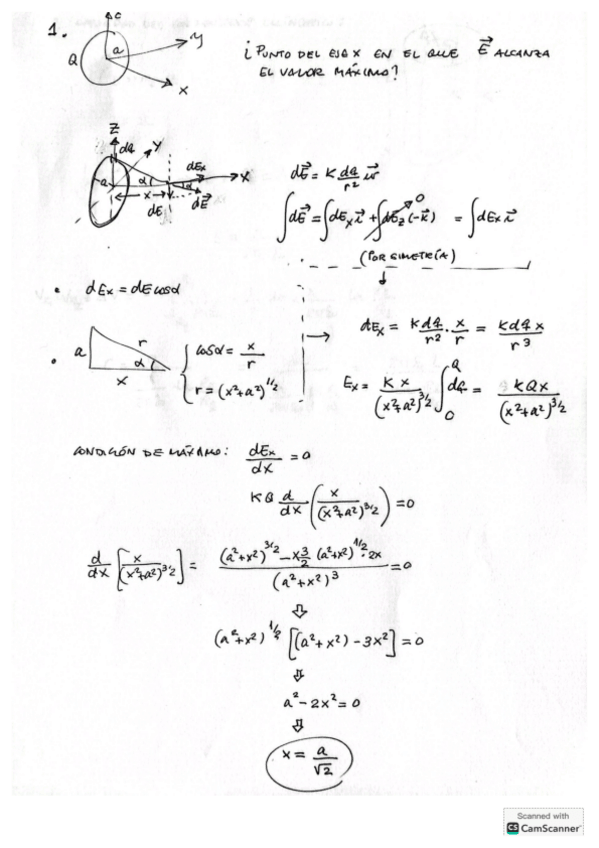 1.
Q a y x
¿PUNTO DEL EJE X EN EL QUE E⃗ ALCANZA
EL VALOR MÁXIMO?
z dq y a α dEx x
x dE α dE⃗
dE⃗ = K dq/r² u⃗
∫dE⃗ = ∫dEx i⃗ + ∫dEz(-k⃗) 0 = ∫dEx i⃗
(POR SIMETRÍA)
• dEx = dE cosα
• a r α x
cosα = x/r
r = (x²+a²)^1/2
→ dEx = K dq/r² · x/r = K dq x/r³
Ex = K x/(x²+a²)^3/2 ∫₀^Q dq = K Q x/(x²+a²)^3/2
CONDICIÓN DE MÁXIMO: dEx/dx = 0
K Q d/dx (x/(x²+a²)^3/2) = 0
d/dx [x/(x²+a²)^3/2] = ((a²+x²)^3/2 - x 3/2 (a²+x²)^1/2 · 2x)/(a²+x²)³ = 0
⇓
(a²+x²)^1/2 [(a²+x²) - 3x²] = 0
⇓
a² - 2x² = 0
⇓
x = a/√2
Scanned with
CS CamScanner